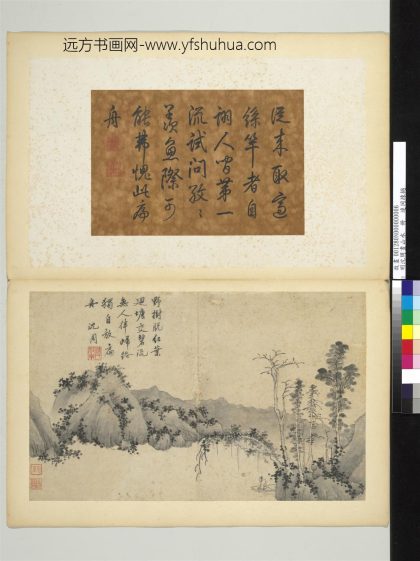 远方书画网-www.yfshuhua.com
從来取適
絲竿者自
詡人間第一
流試問孜〻
羨魚際可
能弗愧此扁
舟
野樹脫紅葉
迴塘交碧流
無人伴歸
獨自放扁
舟 沈周